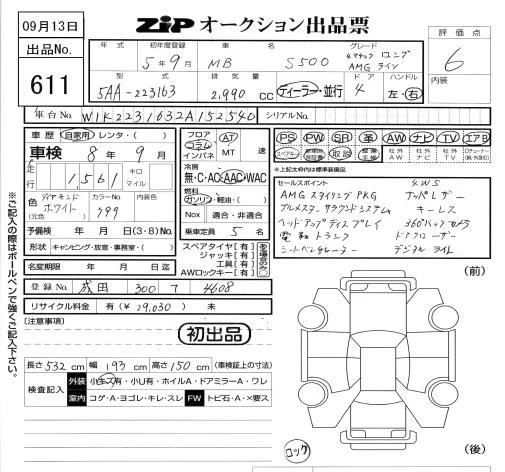 09月13日
ZIP オークション出品票
出品No.
611
評価点
6
内装
年式 初年度登録 車名 グレード
5年9月 MB S500 4マチック ロング
AMG ライン
型式 排気量 ドア ハンドル
5AA-223163 2,990 cc ディーラー・並行 4 左・右
車台No. W1K2231632A152540 シリアルNo.
車歴 自家用 レンタ・( )
車検 8年9月
走行 1,561 キロ マイル
色 ダイヤモンド ホワイト カラーNo. 799 内装色
(元色)
予備検 年 月 日 (3・8)No.
形状 キャンピング・放宣・事務室・( )
名変期限 年 月 日迄
登録No. 成田 300 フ 4608
リサイクル料金 有(¥29,030) 未
フロア コラム インパネ AT MT 速
冷房 無・C・AC・AAC・WAC
燃料 ガソリン・軽油・( )
Nox 適合・非適合
乗車定員 5名
スペアタイヤ[有]
ジャッキ[有]
工具[有]
AWロックキー[有]
PS PW SR 革 AW ナビ TV エアB
取説
社外AW 社外ナビ 社外TV
*上記太わく内は標準装備品
セールスポイント 4WS
AMG スタイリング PKG ナッパレザー
ブルメスター サラウンドシステム キーレス
ヘッドアップディスプレイ 360°バックカメラ
電動トランク ドアクローザー
シートベンチレーター デジタルライト
(前)
[注意事項]
初出品
長さ532cm 幅193cm 高さ150cm (車検証上の寸法)
検査記入 外装 小キズ有・小U有・ホイルA・ドアミラーA・ワレ
室内 コゲ・A・ヨゴレ・キレ・スレ FW トビ石・A・×要ス
ロック
(後)
※ご記入の際はボールペンで強くご記入下さい。